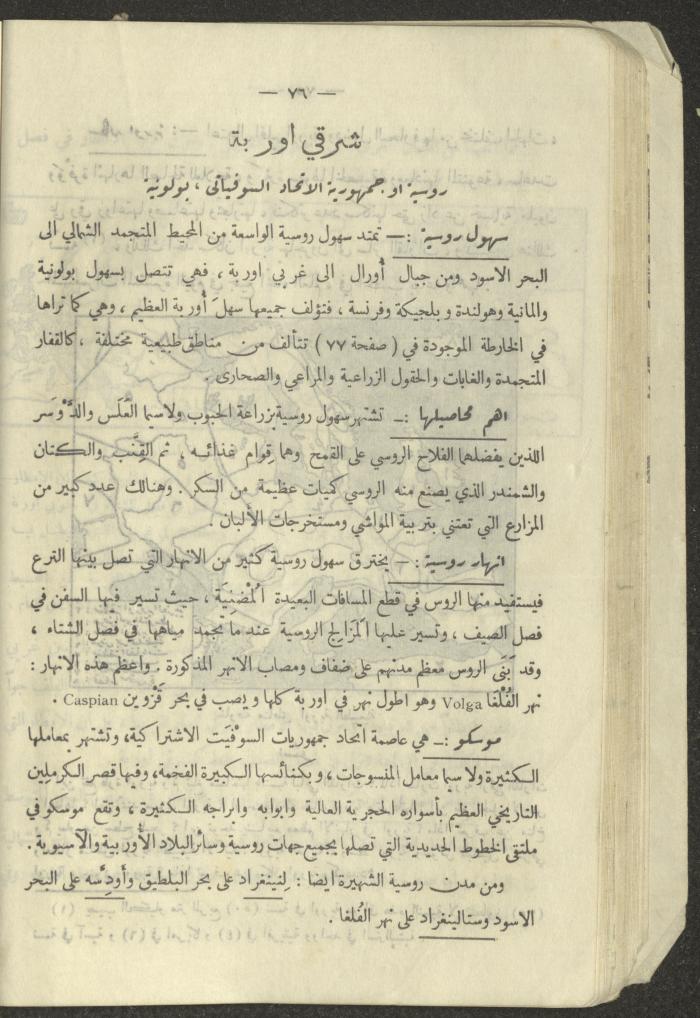 — ٧٦ —
شرقي اوربة
روسية او جمهورية الاتحاد السوفياتى ، بولونية
سهول روسية :— تمتد سهول روسية الواسعة من المحيط المتجمد الشمالي الى
البحر الاسود ومن جبال أورال الى غربي اوربة ، فهي تتصل بسهول بولونية
والمانية وهولندة وبلجيكة وفرنسة ، فتؤلف جميعها سهلَ أوربة العظيم ، وهي كما تراها
في الخارطة الموجودة في ( صفحة ٧٧ ) تتألف من مناطق طبيعية مختلفة ، كالقفار
المتجمدة والغابات والحقول الزراعية والمراعي والصحارى .
اهم محاصيلها :— تشتهر سهول روسية بزراعة الحبوب ولاسيما العَلَس والدَّوسَر
اللذين يفضلهما الفلاح الروسي على القمح وهما قِوام غذائه ، ثم القِنَّب والكتان
والشمندر الذي يصنع منه الروسي كميات عظيمة من السكر . وهنالك عدد كبير من
المزارع التي تعتني بتربية المواشي ومستخرجات الألبان .
انهار روسية :— يخترق سهول روسية كثير من الانهار التي تصل بينها الترع
فيستفيد منها الروس في قطع المسافات البعيدة المُضنِيَة ، حيث تسير فيها السفن في
فصل الصيف ، وتسير عليها المَزَالِج الروسية عند ما تجمد مياهها في فصل الشتاء ،
وقد بَنَى الروس معظم مدنهم على ضفاف ومصاب الانهر المذكورة . واعظم هذه الانهار :
نهر الفُلْغَا Volga وهو اطول نهر في اوربة كلها ويصب في بحر قَزْوين Caspian .
موسكو :— هي عاصمة اتحاد جمهوريات السوفيَت الاشتراكية، وتشتهر بمعاملها
الكثيرة ولا سيما معامل المنسوجات ، وبكنائسها الكبيرة الفخمة، وفيها قصر الكرملين
التاريخي العظيم بأسواره الحجرية العالية وابوابه وابراجه الكثيرة ، وتقع موسكو في
ملتقى الخطوط الحديدية التي تصلها بجميع جهات روسية وسائر البلاد الأوربية والآسيوية .
ومن مدن روسية الشهيرة ايضا : لِنينغراد على بحر البلطيق وأودِسَّه على البحر
الاسود وستالينغراد على نهر الفُلغا .